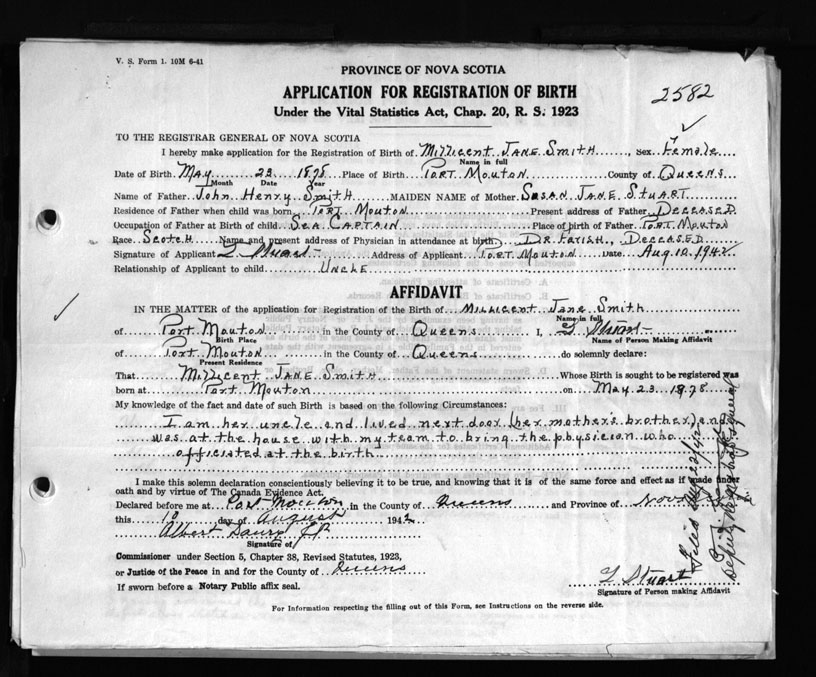 V. S. Form 1. 10M 6-41
PROVINCE OF NOVA SCOTIA
APPLICATION FOR REGISTRATION OF BIRTH
2582
Under the Vital Statistics Act, Chap. 20, R. S. 1923
TO THE REGISTRAR GENERAL OF NOVA SCOTIA
I hereby make application for the Registration of Birth of Millicent Jane Smith, Sex Female
Name in full
Date of Birth May 23 1878 Place of Birth Port Mouton County of Queens
Month Date Year
Name of Father John Henry Smith MAIDEN NAME of Mother Susan Jane Stuart
Residence of Father when child was born Port Mouton Present address of Father Deceased
Occupation of Father at Birth of child Sea Captain Place of birth of Father Port Mouton
Race Scotch Name and present address of Physician in attendance at birth Dr Farish, Deceased
Signature of Applicant Stuart Address of Applicant Port Mouton Date Aug 10, 1942
Relationship of Applicant to child Uncle
AFFIDAVIT
IN THE MATTER of the application for Registration of the Birth of Millicent Jane Smith
Name in full
of Port Mouton in the County of Queens I, Stuart
Birth Place Name of Person Making Affidavit
of Port Mouton in the County of Queens do solemnly declare:
Present Residence
That Millicent Jane Smith Whose Birth is sought to be registered was
born at Port Mouton on May 23 1878
My knowledge of the fact and date of such Birth is based on the following Circumstances:
I am her uncle and lived next door (her mother's brother) and
was at the house with my team to bring the physician who
officiated at the birth
I make this solemn declaration conscientiously believing it to be true, and knowing that it is of the same force and effect as if made under
oath and by virtue of The Canada Evidence Act.
Declared before me at Port Mouton in the County of Queens and Province of Nova
this 10 day of August 1942
Albert JP
Signature of
Commissioner under Section 5, Chapter 38, Revised Statutes, 1923,
or Justice of the Peace in and for the County of Queens
If sworn before a Notary Public affix seal.
Stuart
Signature of Person making Affidavit
For Information respecting the filling out of this Form, see Instructions on the reverse side.
Filed Aug 22/42
Deputy Registrar General